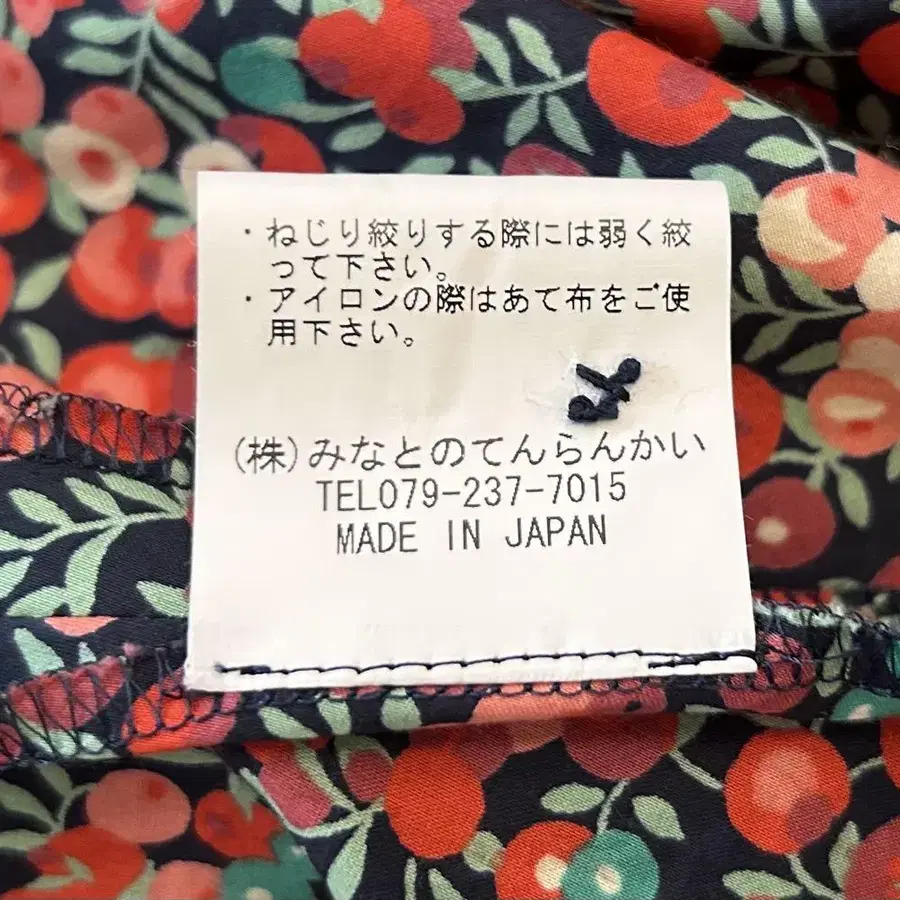 ・ねじり絞りする際には弱く絞
って下さい。
・アイロンの際はあて布をご使
用下さい。
(株)みなとのてんらんかい
TEL079-237-7015
MADE IN JAPAN